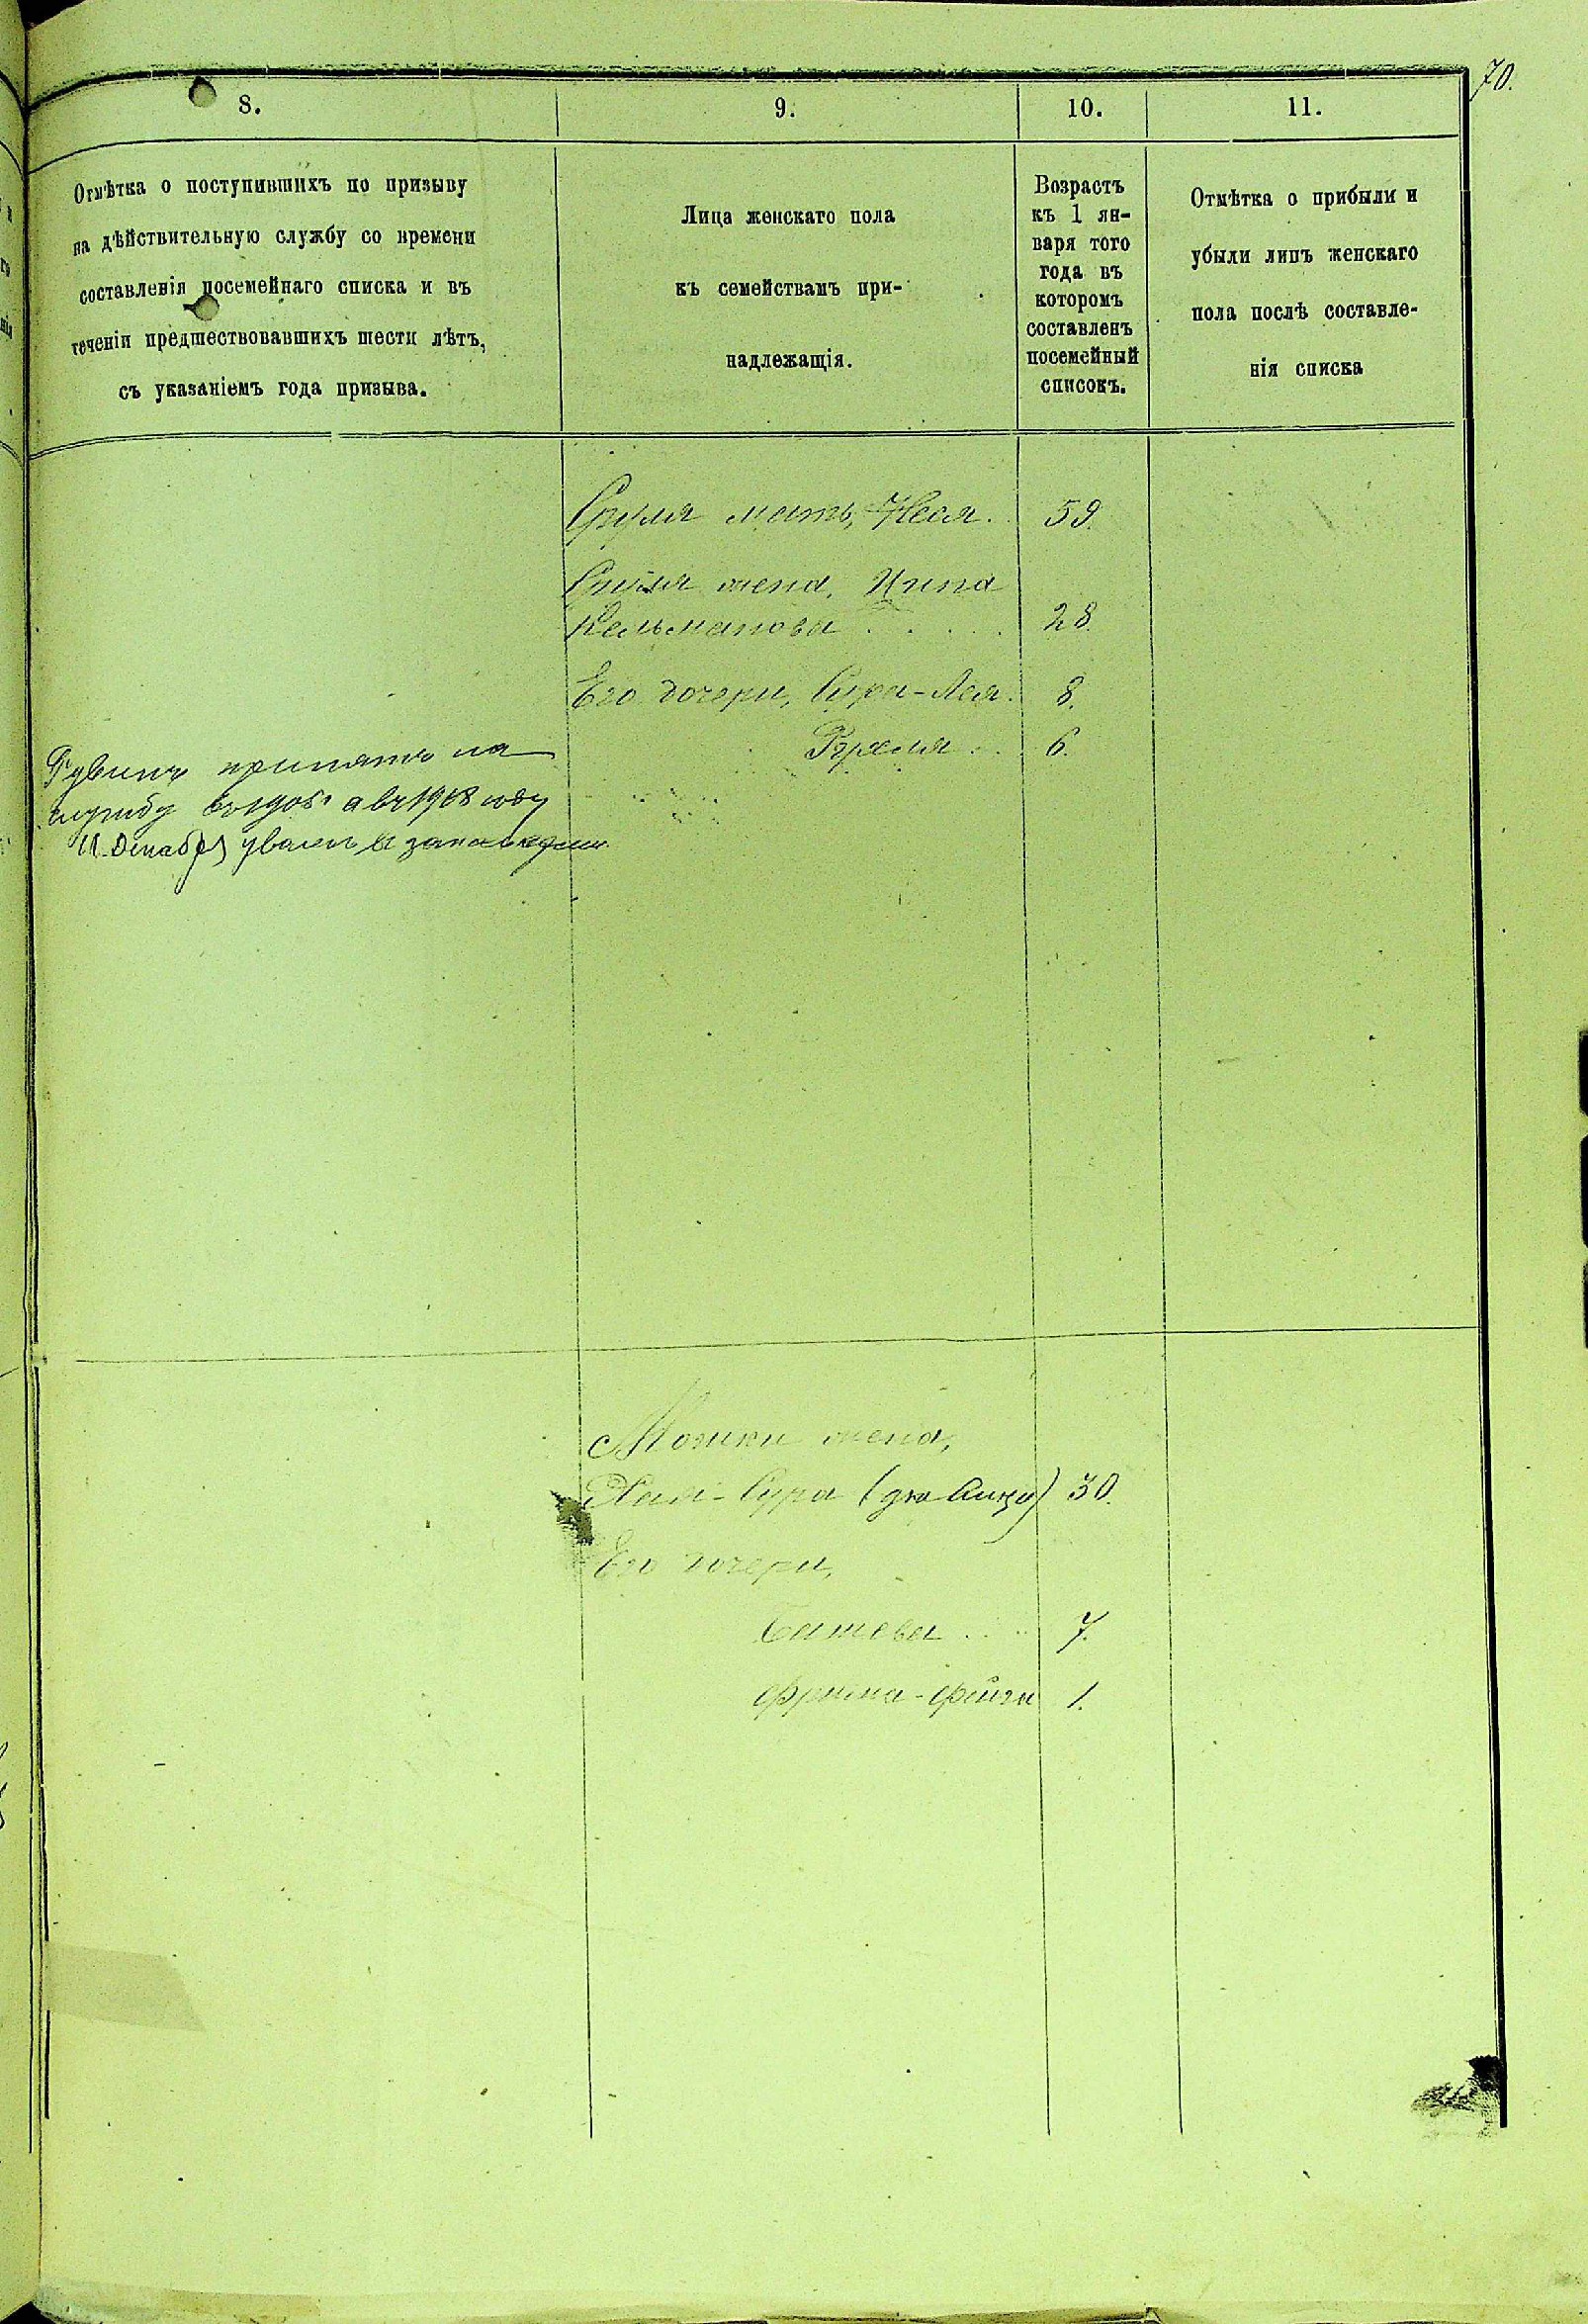 70.
8.
9.
10.
11.
Отмѣтка о поступившихъ по призыву
на дѣйствительную службу со времени
составленія посемейнаго списка и въ
теченіи предшествовавшихъ шести лѣтъ,
съ указаніемъ года призыва.
Лица женскаго пола
къ семействамъ при-
надлежащія.
Возрастъ
къ 1 ян-
варя того
года въ
которомъ
составленъ
посемейный
списокъ.
Отмѣтка о прибыли и
убыли лицъ женскаго
пола послѣ составле-
нія списка
Сруля мать, Неся. 59.
Сруля жена, Ципа
Кельманова . . . . . 28.
Его дочери, Сура-Лея. 8.
Рухля . . 6.
Рувинъ принятъ на
службу въ 1905 г а въ 1908 году
11 Декабря уволенъ въ запасъ
Мошки жена,
Хая-Сура (она Сура) 30.
Его дочери,
Башева . . . 7.
Фрима-Фейга 1.